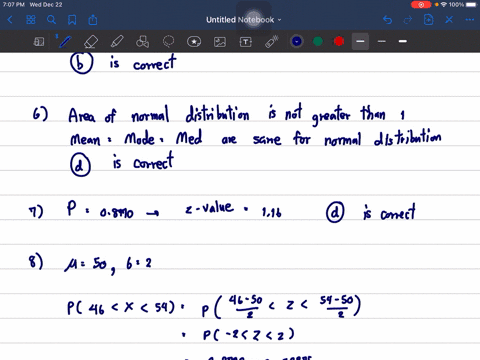 7:07 PM Wed Dec 22
100%
Untitled Notebook
(b) is correct
6) Area of normal distribution is not greater than 1
Mean = Mode = Med are same for normal distribution
(d) is correct
7) P = 0.8770 → z-value = 1.16 (d) is correct
8) μ = 50, σ = 2
P(46 < X < 54) = P(46-50/2 < Z < 54-50/2)
= P(-2 < Z < 2)